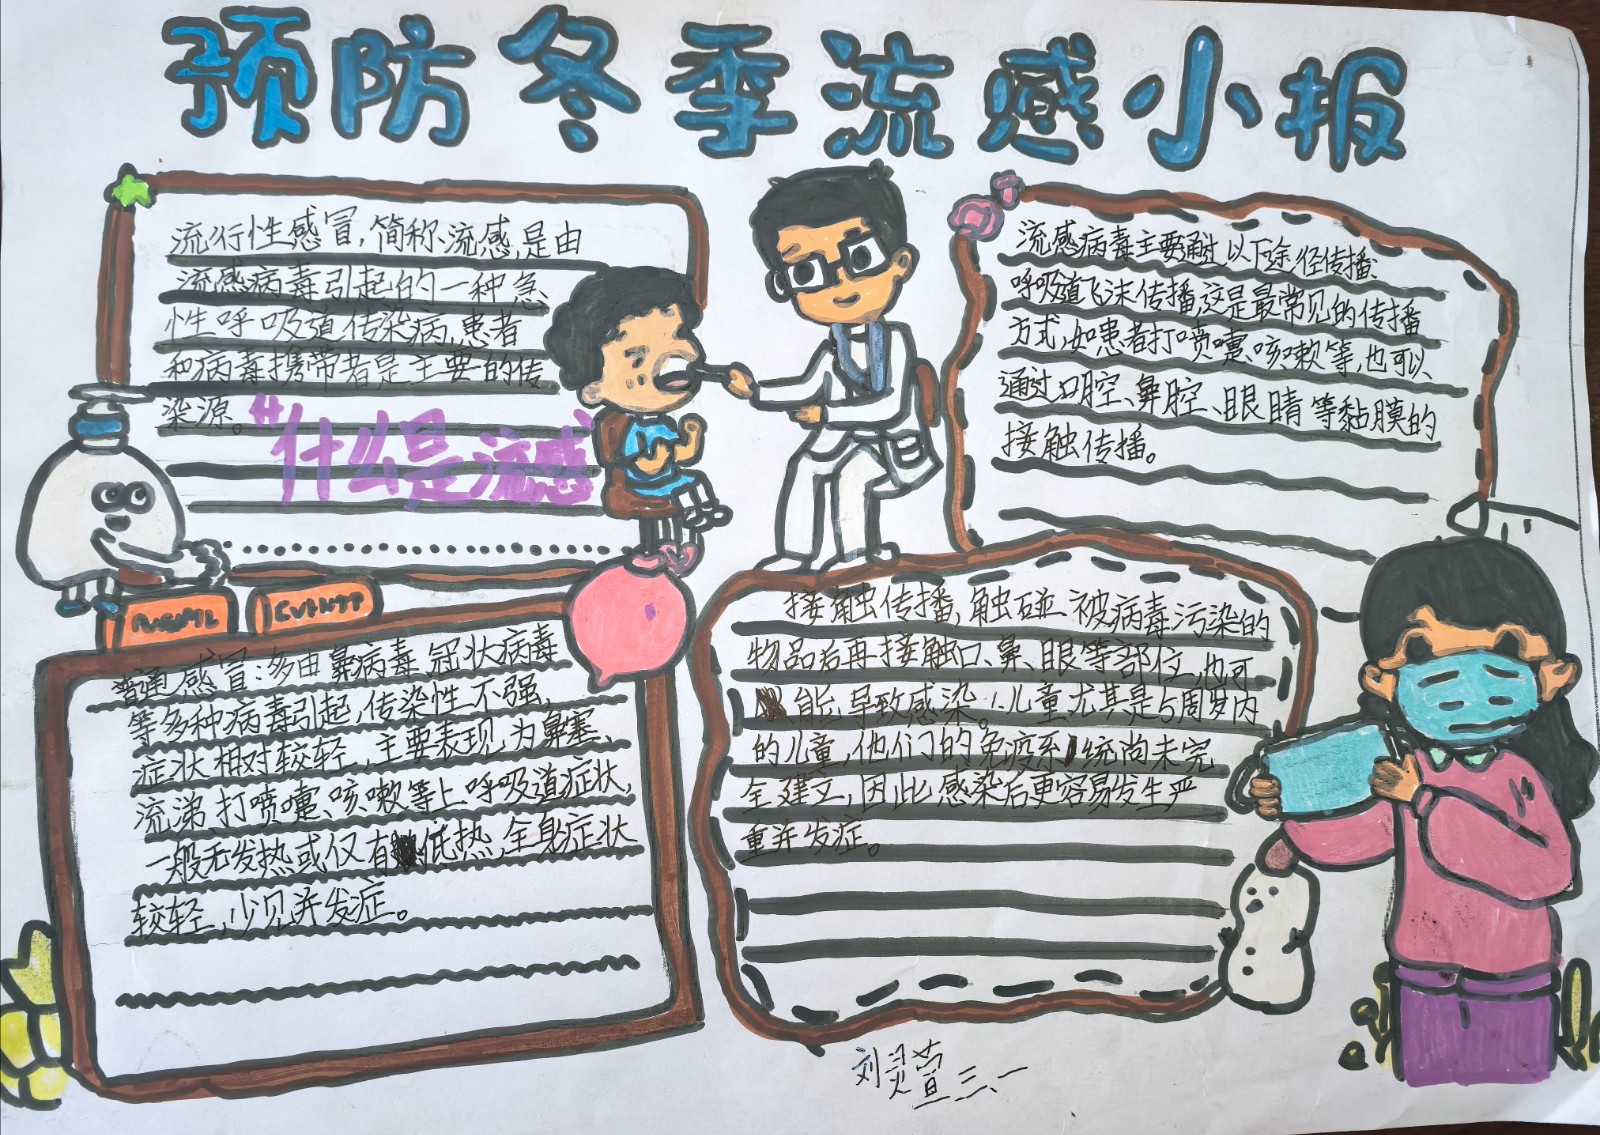 预防冬季流感小报
流行性感冒,简称、流感,是由
流感病毒引起的一种急、
性呼吸道传染病,患者
和病毒携带者是主要的传
染源。
"什么是流感
流感病毒主要通过以下途径传播、
呼吸道飞沫传播,这是最常见的传播
方式,如患者打喷嚏、咳嗽等,也可以
通过口腔、鼻腔、眼睛等黏膜的
接触传播。
普通感冒:多由鼻病毒、冠状病毒
等多种病毒引起,传染性不强,
症状相对较轻,主要表现为鼻塞、
流涕、打喷嚏、咳嗽等上呼吸道症状,
一般无发热或仅有低热,全身症状
较轻,少见并发症。
接触传播,触碰被病毒污染的
物品后再接触口、鼻、眼等部位,也可
能导致感染。儿童尤其是5周岁内
的儿童,他们的免疫系统尚未完
全建立,因此感染后更容易发生严
重并发症。
刘灵萱 三、一